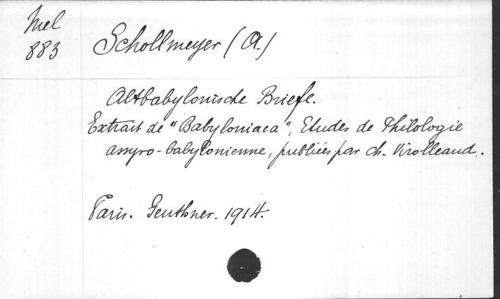 Mel
883
Schollmeyer (A.)
Altbabylonische Briefe.
Extrait de "Babyloniaca", Etudes de Philologie
assyro-babylonienne, publiées par Ch. Virolleaud.
Paris. Geuthner. 1914.